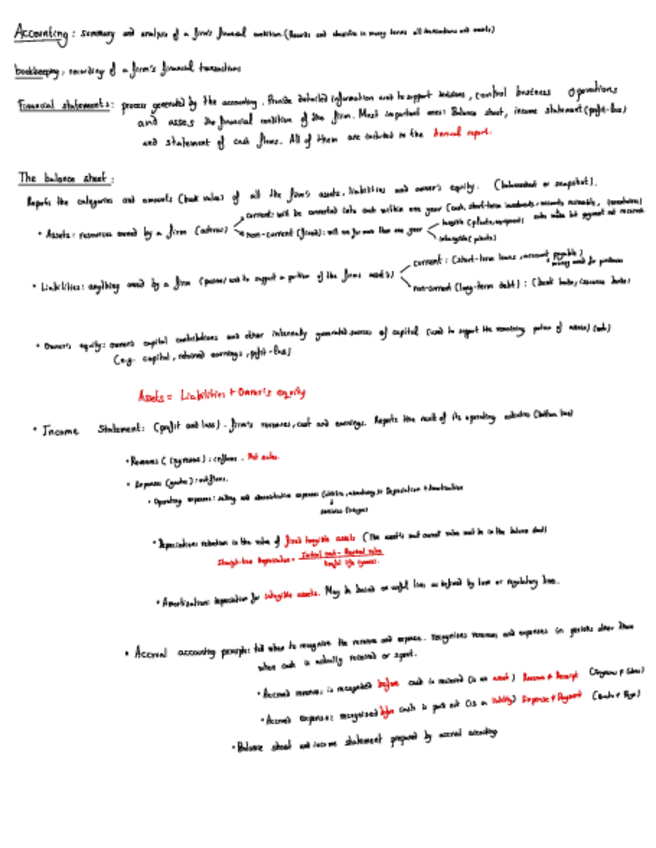 Accounting: summary and analysis of a firm's financial condition. (Records and classifies in money terms all transactions and events)
bookkeeping: recording of a firm's financial transactions
Financial statements: process generated by the accounting. Provide detailed information used to support decisions, control business operations
and asses the financial condition of the firm. Most important ones: Balance sheet, income statement (profit-loss)
and statement of cash flows. All of them are included in the Annual report.
The balance sheet:
Reports the categories and amounts (book value) of all the firm's assets, liabilities and owner's equity. (balancesheet or snapshot).
current: will be converted into cash within one year (cash, short-term investments, accounts receivable, inventories)
• Assets: resources owned by a firm (activos)
non-current (fixed): will for more than one year
tangible (plants, equipment)
intangible (patents)
current: (short-term loans, account payable)
money owed for purchases
• Liabilities: anything owed by a firm (pasivos) used to support a portion of the firms assets)
non-current (long-term debt): (bank loans, issuance bonds)
• Owner's equity: owners capital contributions and other internally generated sources of capital (used to support the remaining portion of assets)
(e.g. capital, retained earnings, profit-loss)
Assets = Liabilities + Owner's equity
• Income Statement: (profit and loss). firm's revenues, cost and earnings. Reports the result of its operating activities
• Revenues (ingresos): inflows. Net sales.
• Expenses (gastos): outflows.
• Operating expenses: selling and administrative expenses + Depreciation + Amortization
• Depreciation: reduction in the value of fixed tangible assets (The asset's current value must be in the balance sheet)
Straight-line Depreciation = Initial cost - Residual value
Useful life (years).
• Amortization: depreciation for intangible assets. May be based on useful lives as defined by law or regulatory.
• Accrual accounting principle: tell when to recognise the revenue and expense. recognizes revenues and expenses in periods other than
when cash is actually received or spent.
• Accrued revenue: is recognized before cash is received (is an asset) Revenue ≠ Receipt (Ingreso ≠ Cobro)
• Accrued expense: recognised before cash is paid out (is a liability) Expense ≠ Payment (Gasto ≠ Pago)
• Balance sheet and income statement prepared by accrual accounting